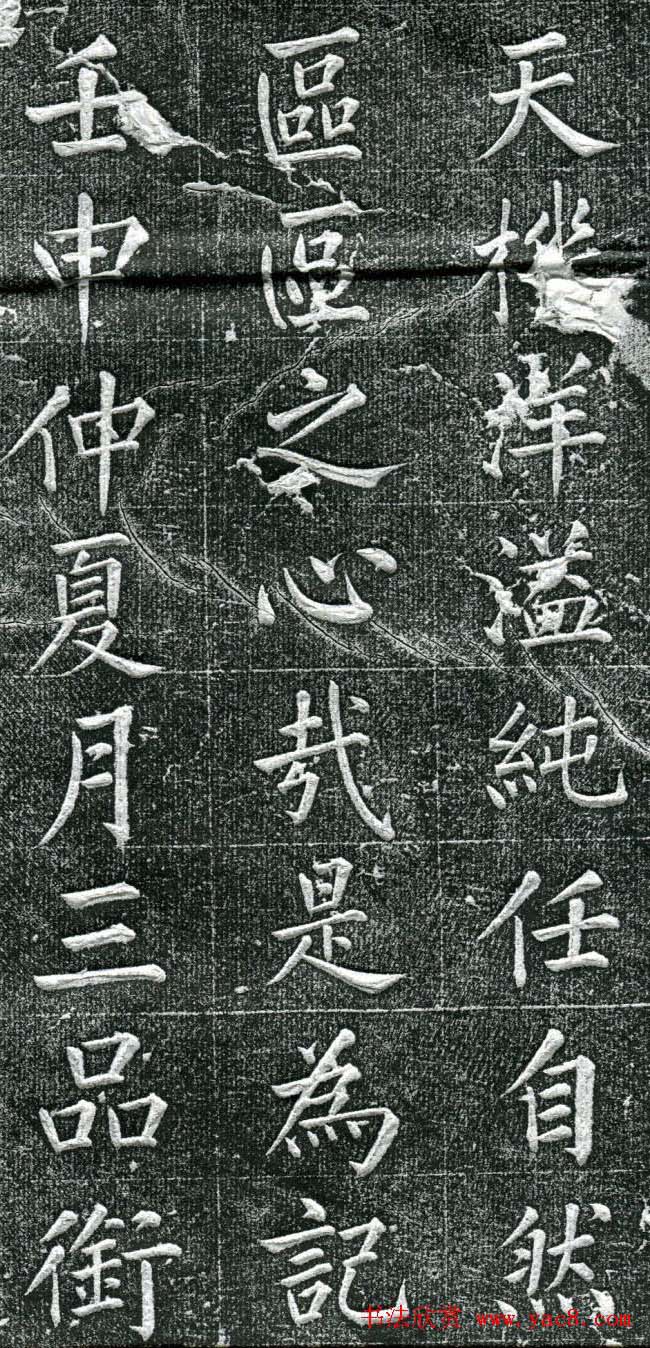 天機洋溢純任自然
區區之心哉是為記
壬申仲夏月三品銜
书法欣赏 www.yac8.com